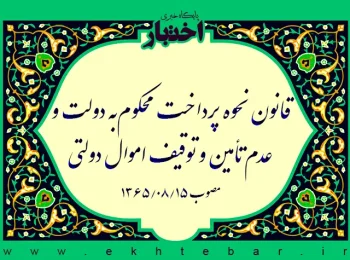 پایگاه خبری
اختبار
قانون نحوه پرداخت محکوم به دولت و
عدم تأمین و توقیف اموال دولتی
مصوب ۱۳۶۵/۰۸/۱۵
www.ekhtebar.ir